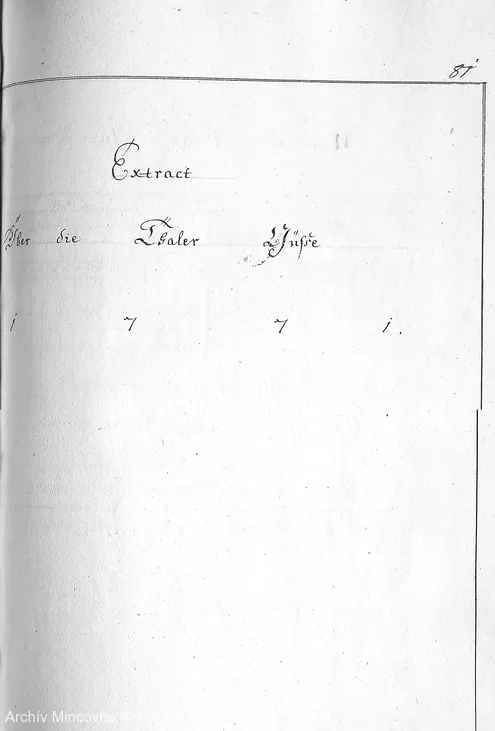 81
Extract
Über die Thaler Güsse
1 7 7 1.
Archív Mincovne Krem